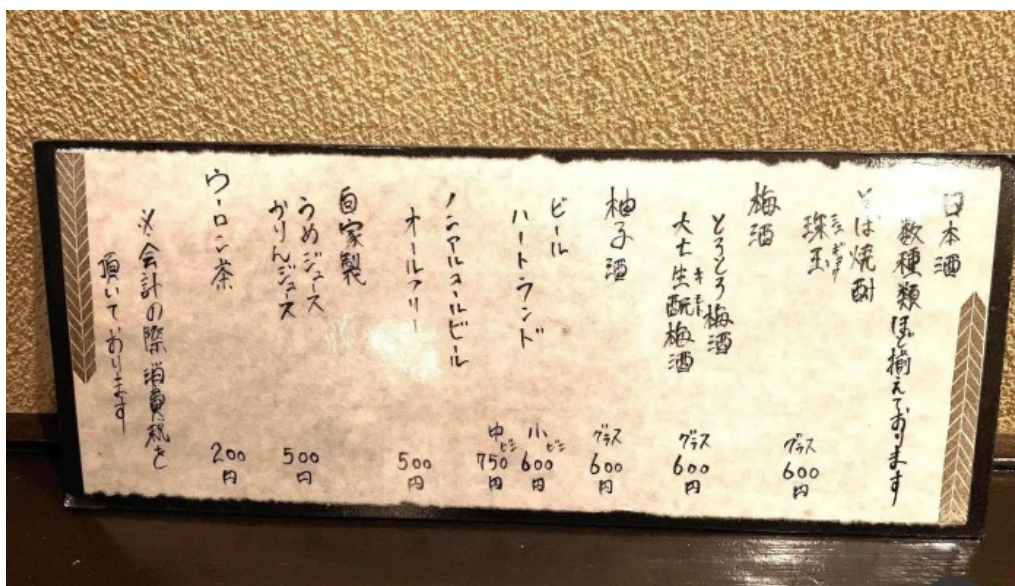 日本酒
数種類ほど揃えております
そば焼酎
珠玉
グラス
600
円
梅酒
とろとろ梅酒
大七生酛梅酒
キモト
グラス
600
円
柚子酒
グラス
600
円
ビール
ハートランド
小ビン
600
円
中ビン
750
円
ノンアルコールビール
オールフリー
500
円
自家製
うめジュース
かりんジュース
500
円
ウーロン茶
200
円
※会計の際消費税を
頂いております